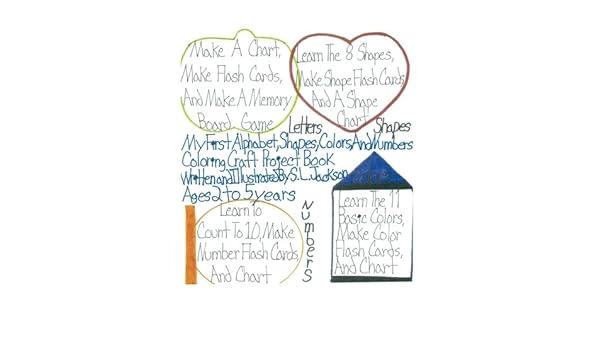 Make A Chart,
Make Flash Cards,
And Make A Memory
Board Game
Learn The 8 Shapes,
Make Shape Flash Cards
And A Shape
Chart
Letters
Shapes
My First Alphabet, Shapes, Colors, And Numbers
Coloring Craft Project Book
Written and Illustrated By S.L. Jackson
Ages 2 to 5 years
Learn To
Count To 10, Make
Number Flash Cards,
And Chart
Numbers
Learn The 11
Basic Colors,
Make Color
Flash Cards,
And Chart